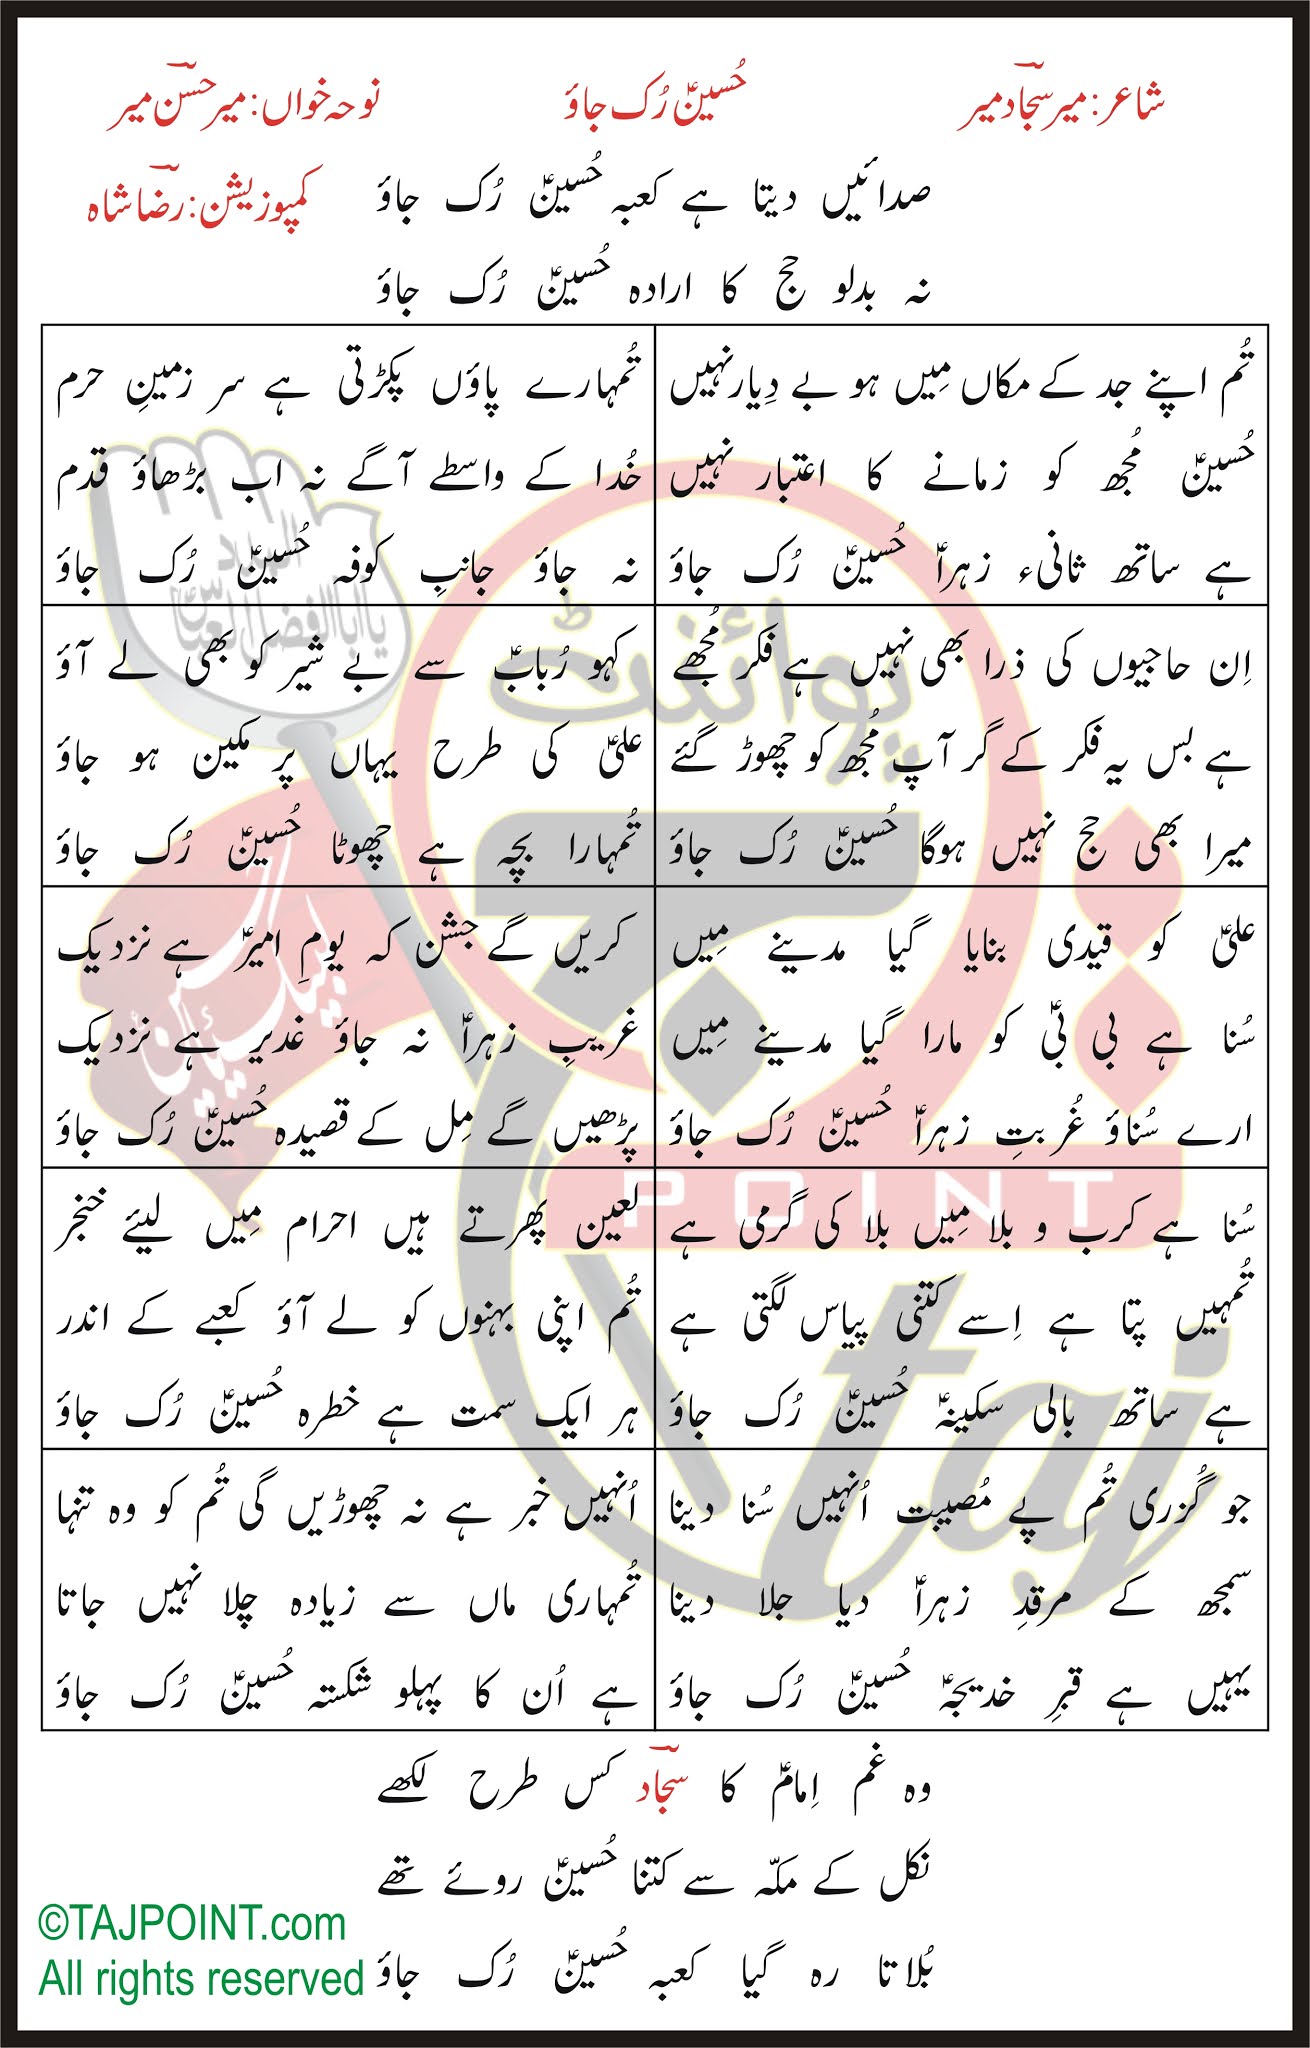 شاعر: میر سجاؔد میر
حُسینؑ رُک جاؤ
نوحہ خواں: میر حسؔن میر
کمپوزیشن: رضؔا شاہ
صدائیں دیتا ہے کعبہ حُسینؑ رُک جاؤ
نہ بدلو حج کا ارادہ حُسینؑ رُک جاؤ
تُم اپنے جد کے مکاں مِیں ہو بے دِیار نہیں
حُسینؑ مُجھ کو زمانے کا اعتبار نہیں
ہے ساتھ ثانیء زہراؑ حُسینؑ رُک جاؤ
تُمہارے پاؤں پکڑتی ہے سر زمینِ حرم
خُدا کے واسطے آگے نہ اب بڑھاؤ قدم
نہ جاؤ جانبِ کوفہ حُسینؑ رُک جاؤ
اِن حاجیوں کی ذرا بھی نہیں ہے فکر مُجھے
ہے بس یہ فکر کے گر آپ مُجھ کو چھوڑ گئے
میرا بھی حج نہیں ہوگا حُسینؑ رُک جاؤ
کہو رُبابؑ سے بے شیر کو بھی لے آؤ
علیؑ کی طرح یہاں پر مکین ہو جاؤ
تُمہارا بچہ ہے چھوٹا حُسینؑ رُک جاؤ
علیؑ کو قیدی بنایا گیا مدینے مِیں
سُنا ہے بی بیؑ کو مارا گیا مدینے مِیں
ارے سُناؤ غُربتِ زہراؑ حُسینؑ رُک جاؤ
کریں گے جشن کہ یومِ امیرؑ ہے نزدیک
غریبِ زہراؑ نہ جاؤ غدیر ہے نزدیک
پڑھیں گے مِل کے قصیدہ حُسینؑ رُک جاؤ
سُنا ہے کرب و بلا مِیں بلا کی گرمی ہے
تُمہیں پتا ہے اِسے کتنی پیاس لگتی ہے
ہے ساتھ بالی سکینہؑ حُسینؑ رُک جاؤ
لعین پھرتے ہیں احرام مِیں لیئے خنجر
تُم اپنی بہنوں کو لے آؤ کعبے کے اندر
ہر ایک سمت ہے خطرہ حُسینؑ رُک جاؤ
جو گُزری تُم پے مُصیبت اُنہیں سُنا دینا
سمجھ کے مرقدِ زہراؑ دیا جلا دینا
یہیں ہے قبرِ خدیجہؑ حُسینؑ رُک جاؤ
اُنہیں خبر ہے نہ چھوڑیں گی تُم کو وہ تنہا
تُمہاری ماں سے زیادہ چلا نہیں جاتا
ہے اُن کا پہلو شکستہ حُسینؑ رُک جاؤ
وہ غم اِمامؑ کا سجاؔد کس طرح لکھے
نکل کے مکّہ سے کتنا حُسینؑ روئے تھے
بُلاتا رہ گیا کعبہ حُسینؑ رُک جاؤ
©TAJPOINT.com
All rights reserved
پوائنٹ
POINT
taj